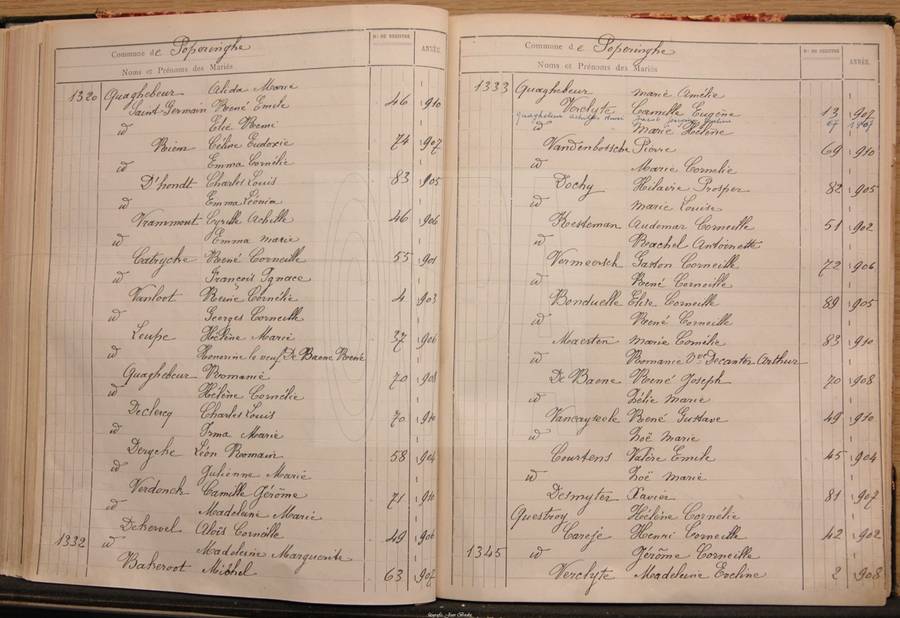 Commune de Poperinghe
Nos DE REGISTRE
ANNÉE.
Noms et Prénoms des Mariés
1320 Quaghebeur Alida Marie
Saint-Germain René Emile 46 910
id Elie Remi
Riem Céline Eudoxie 74 907
id Emma Cornélie
D'hondt Charles Louis 83 905
id Emma Léonia
Vrammout Cyrille Achille 46 906
id Emma Marie
Catryche René Corneille 55 901
id François Ignace
Vanloot Reine Cornélie 4 903
id Georges Corneille
Leupe Hélène Marie 37 906
id Honorine le veuf De Baene René
Quaghebeur Romanie 70 908
id Hélène Cornélie
Declercq Charles Louis 70 910
id Irma Marie
Deryche Léon Romain 58 904
id Julienne Marie
Verdonck Camille Jérôme 71 910
id Madeleine Marie
Dehervel Aloïs Corneille 49 906
1332 id Madeleine Marguerite
Baheroot Michel 63 907
Commune de Poperinghe
Nos DE REGISTRE
ANNÉE.
Noms et Prénoms des Mariés
1333 Quaghebeur Marie Amélie
Verclyte Camille Eugène 13 907
Quaghebeur Achille Henri 67 1907
id Marie Hélène
Vandenbossche Pierre 69 910
id Marie Cornélie
Dochy Hilaire Prosper 82 905
id Marie Louise
Kesteman Audemar Corneille 51 902
id Rachel Antoinette
Vermeersch Gaston Corneille 72 906
id René Corneille
Bonduelle Elise Corneille 89 905
id René Corneille
Maerten Marie Cornélie 83 910
id Romanie Vve Decanter Arthur
De Baene René Joseph 70 908
id Zélie Marie
Vancayzeele René Gustave 49 910
id Zoë Marie
Courtens Valère Emile 45 904
id Zoë Marie
Desmyter Xavier 81 907
Questroy Hélène Cornélie
Careje Henri Corneille 42 902
1345 id Jérôme Corneille
Verclyte Madeleine Eveline 2 908